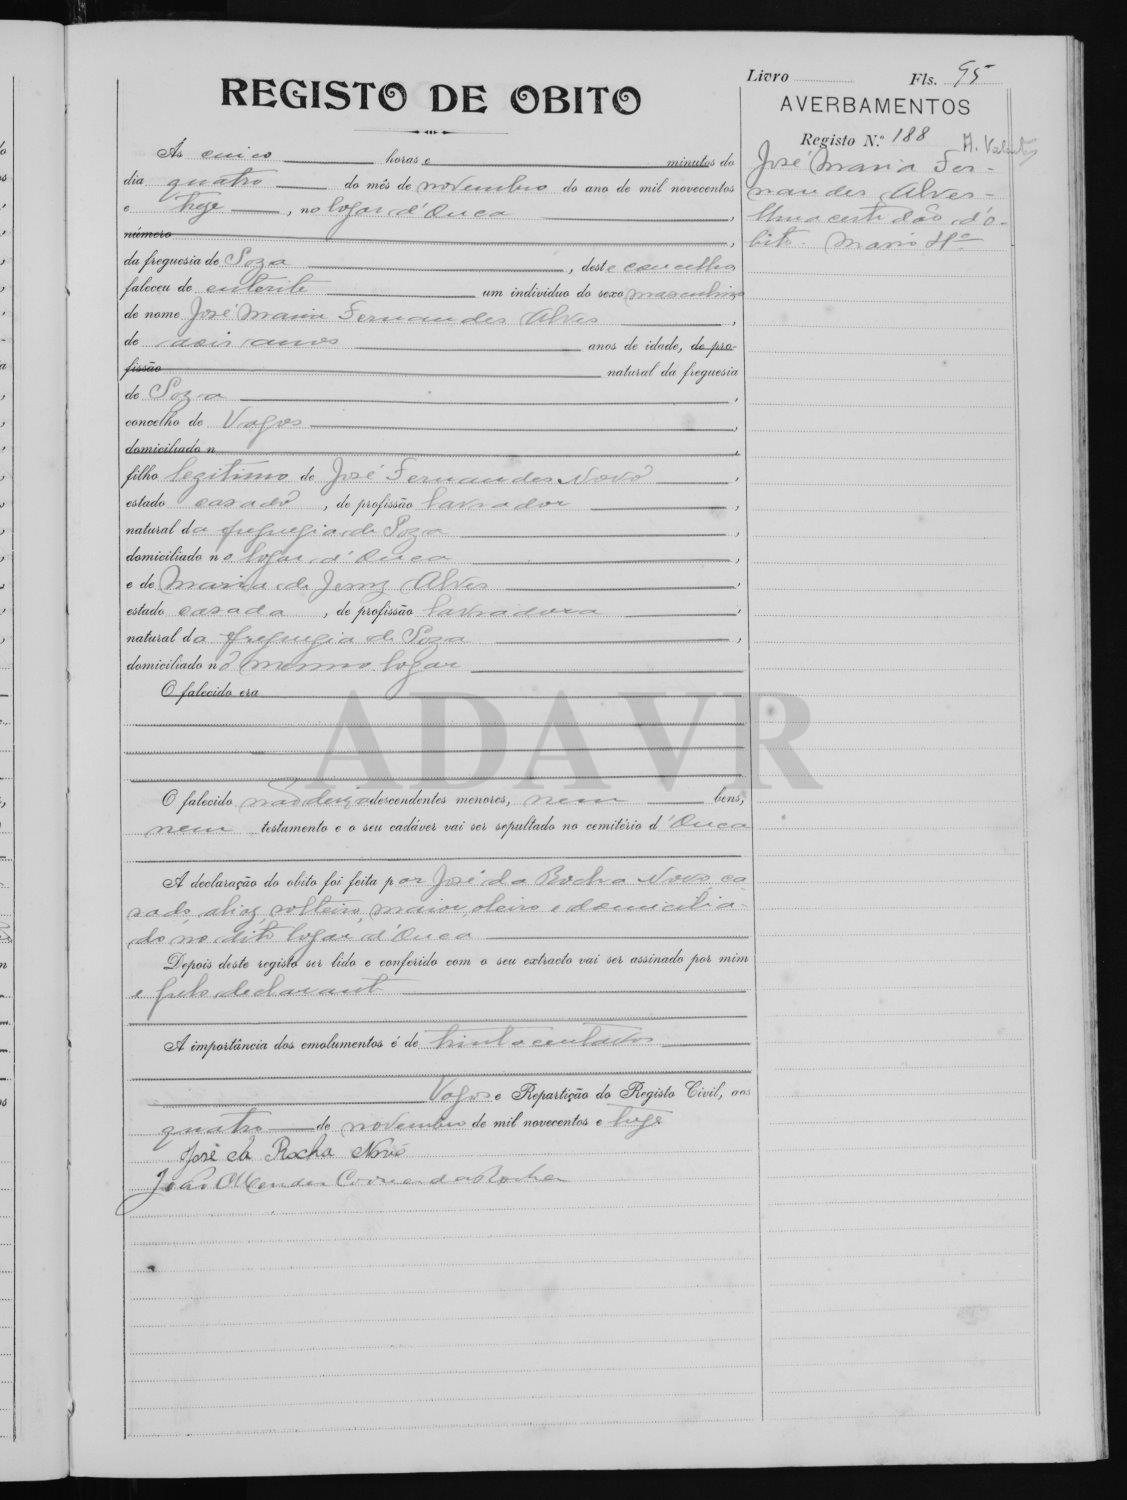 Livro Fls. 95
REGISTO DE OBITO
AVERBAMENTOS
Registo N.º 188
José Maria Fer-
nandes Alves-
Uma certidão d'o-
bito. Mario
Ás cinco horas e minutos do
dia quatro do mês de novembro do ano de mil novecentos
e treze, no logar d'Ouca,
número,
da freguesia de Soza, deste concelho
faleceu de enterite um individuo do sexo masculino
de nome José Maria Fernandes Alves,
de dois anos anos de idade, de pro-
fissão natural da freguesia
de Soza,
concelho de Vagos,
domiciliado n,
filho legitimo de José Fernandes Novo,
estado casado, de profissão lavrador,
natural da freguesia de Soza,
domiciliado no logar d'Ouca,
e de Maria de Jesus Alves,
estado casada, de profissão lavradora,
natural da freguesia de Soza,
domiciliado no mesmo logar
O falecido era
ADAVR
O falecido não deixa descendentes menores, nem bens,
nem testamento e o seu cadáver vai ser sepultado no cemitério d'Ouca
A declaração do obito foi feita por José da Rocha Novo, ca-
sado, aliaz, solteiro, maior, oleiro e domicilia-
do no dito logar d'Ouca
Depois deste registo ser lido e conferido com o seu extracto vai ser assinado por mim
e pelo declarante
A importância dos emolumentos é de trinta centavos
Vagos e Repartição do Registo Civil, aos
quatro de novembro de mil novecentos e treze
José da Rocha Novo
João Mendes Correia da Rocha